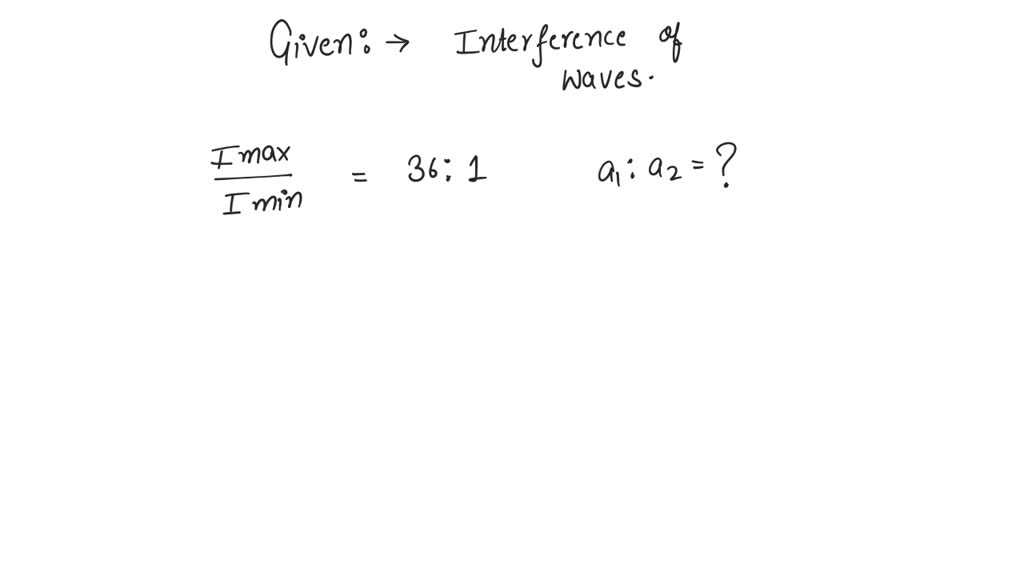 Given:→ Interference of
waves.
Imax
Imin = 36:1 a₁:a₂=?